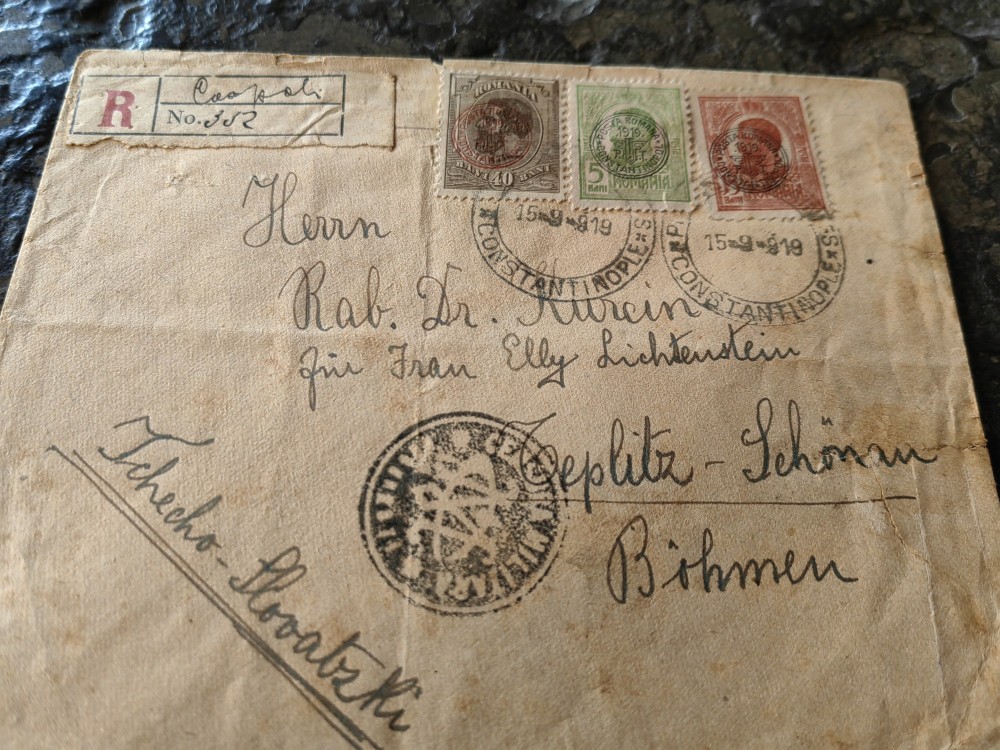 R
No. 352
ROMANIA
BANI 40 BANI
POSTA ROMANA
1919
CONSTANTINOPLE
5
BANI
ROMANIA
1919
BANI
15-9-919
*CONSTANTINOPLE*S
15-9-919
*CONSTANTINOPLE*S
Herrn
Rab. Dr. Kurein
für Frau Elly Lichtenstein
Teplitz - Schönau
Böhmen
Tchecho-Slovatzki